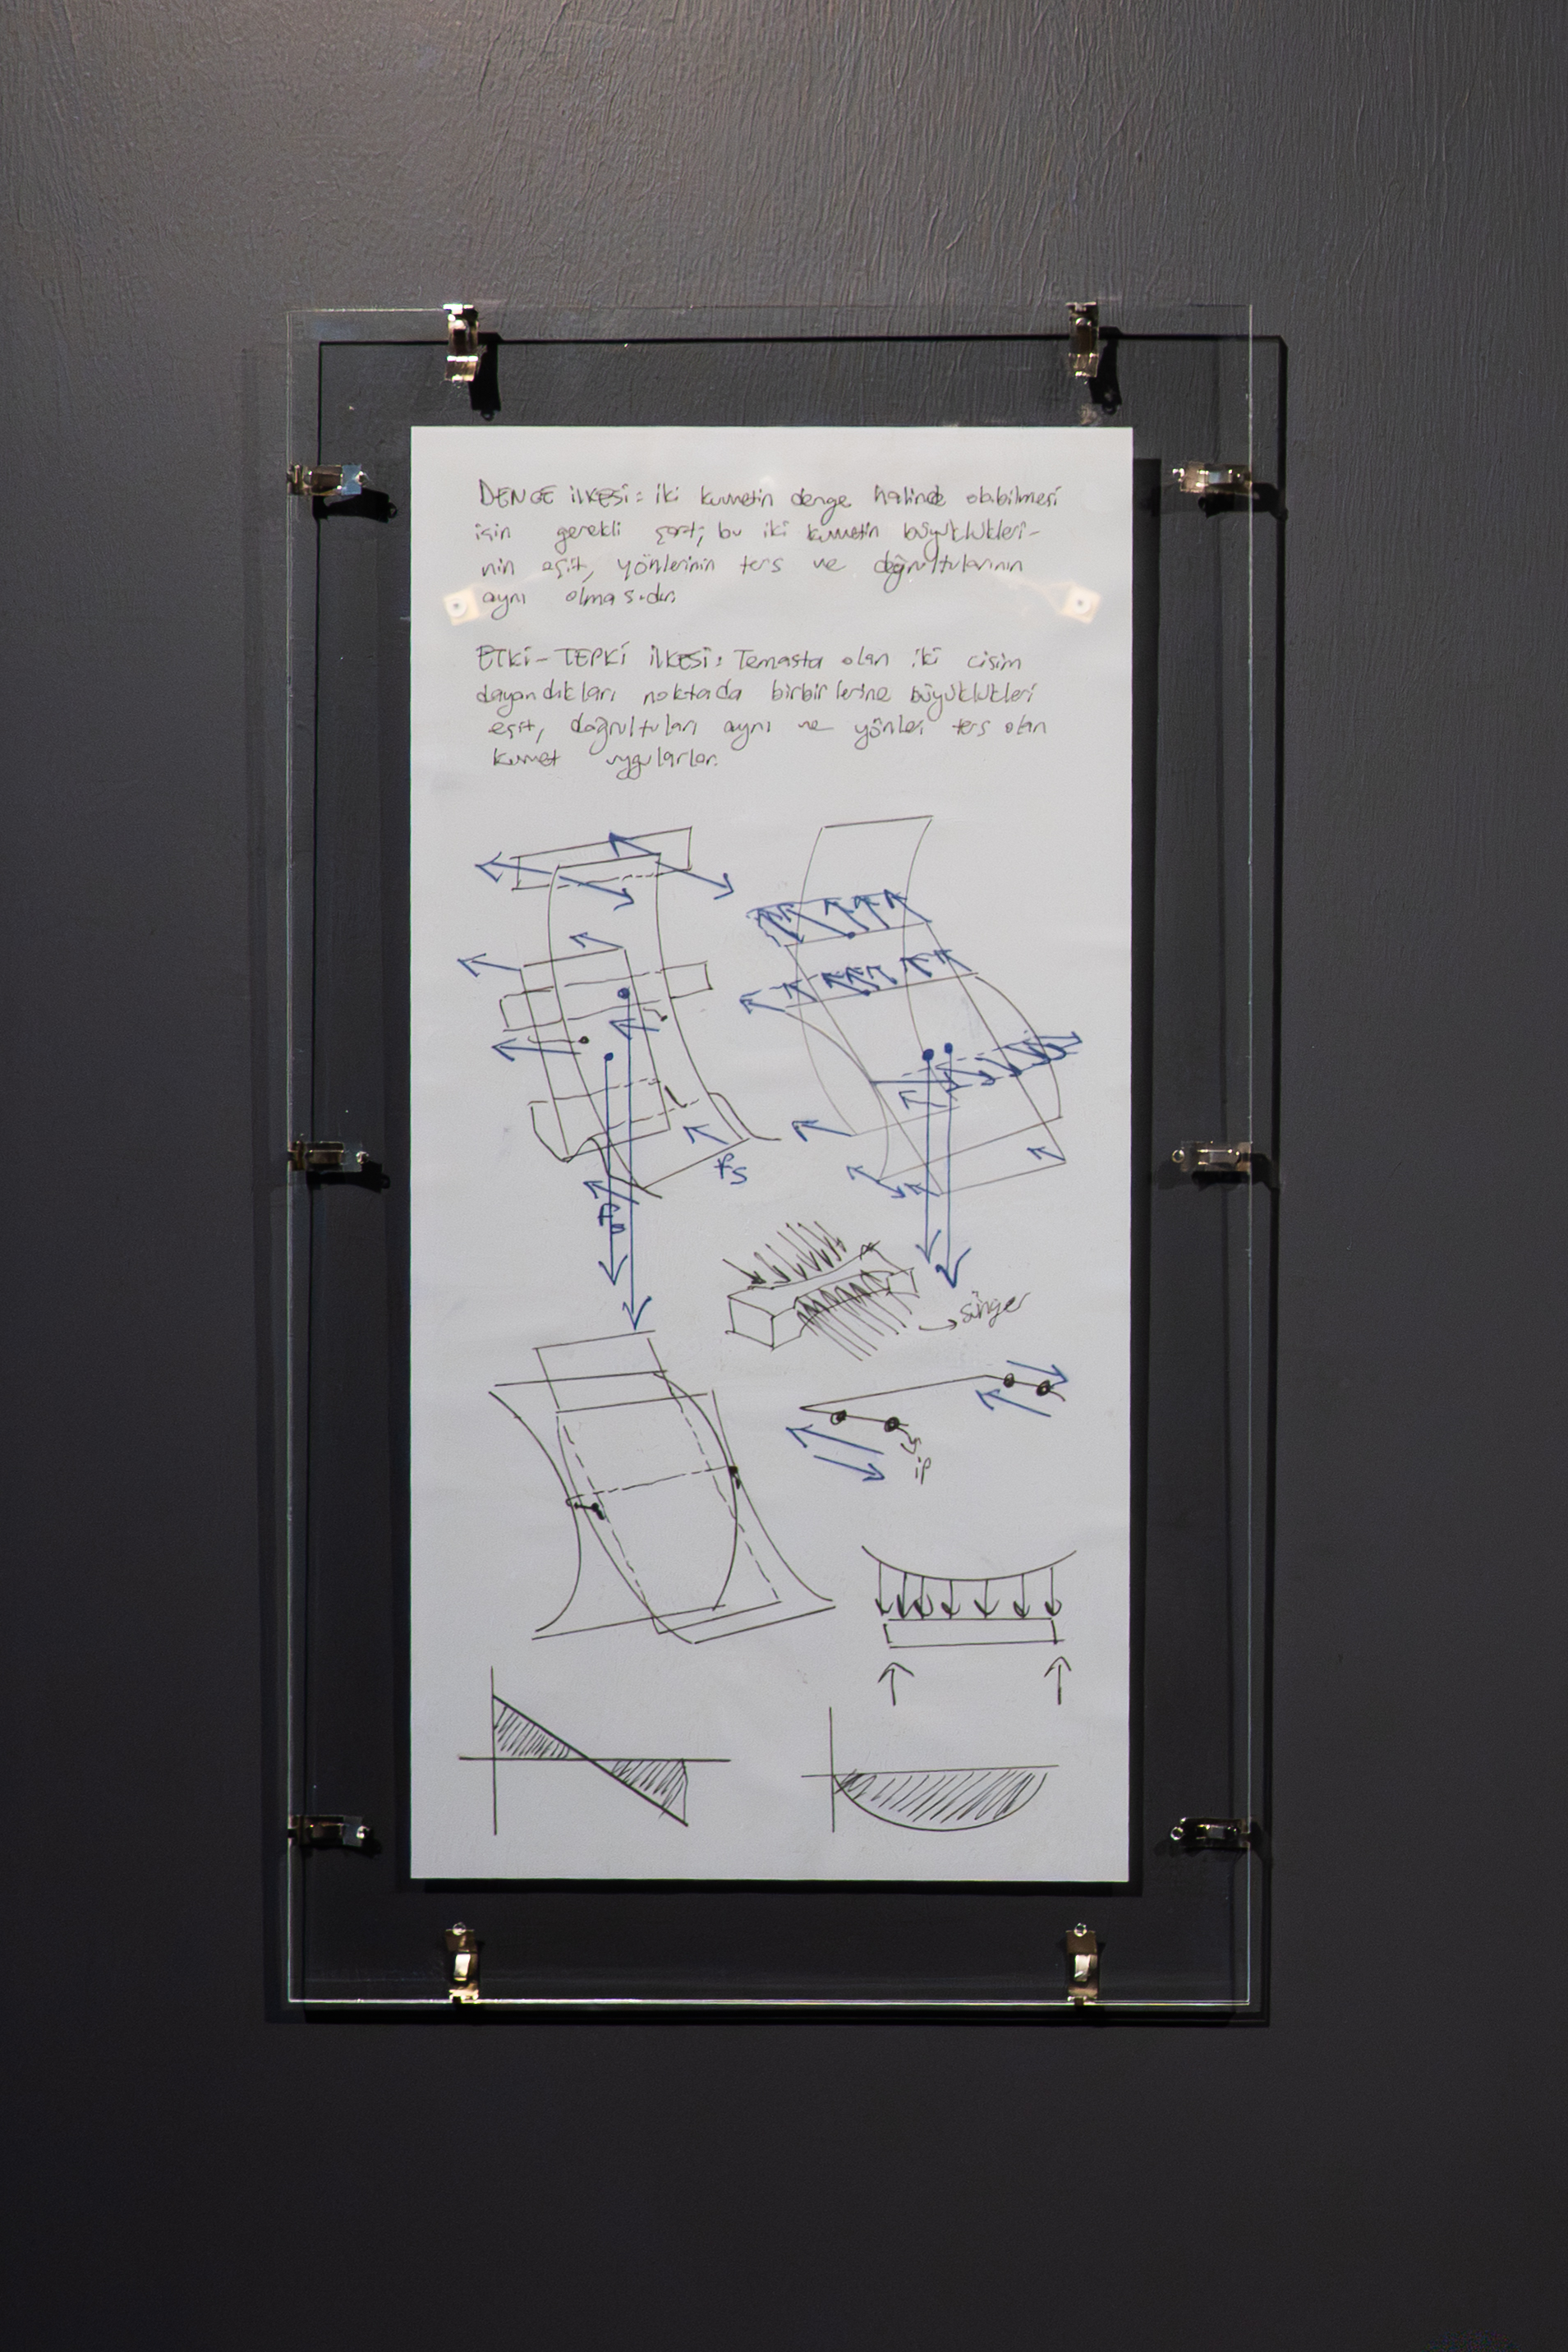 DENGE İLKESİ: iki kuvvetin denge halinde olabilmesi
için gerekli şart; bu iki kuvvetin büyüklükleri-
nin eşit, yönlerinin ters ve doğrultularının
aynı olmasıdır.
ETKİ-TEPKİ İLKESİ: Temasta olan iki cisim
dayandıkları noktada birbirlerine büyüklükleri
eşit, doğrultuları aynı ve yönleri ters olan
kuvvet uygularlar.
fs
sünger
ip